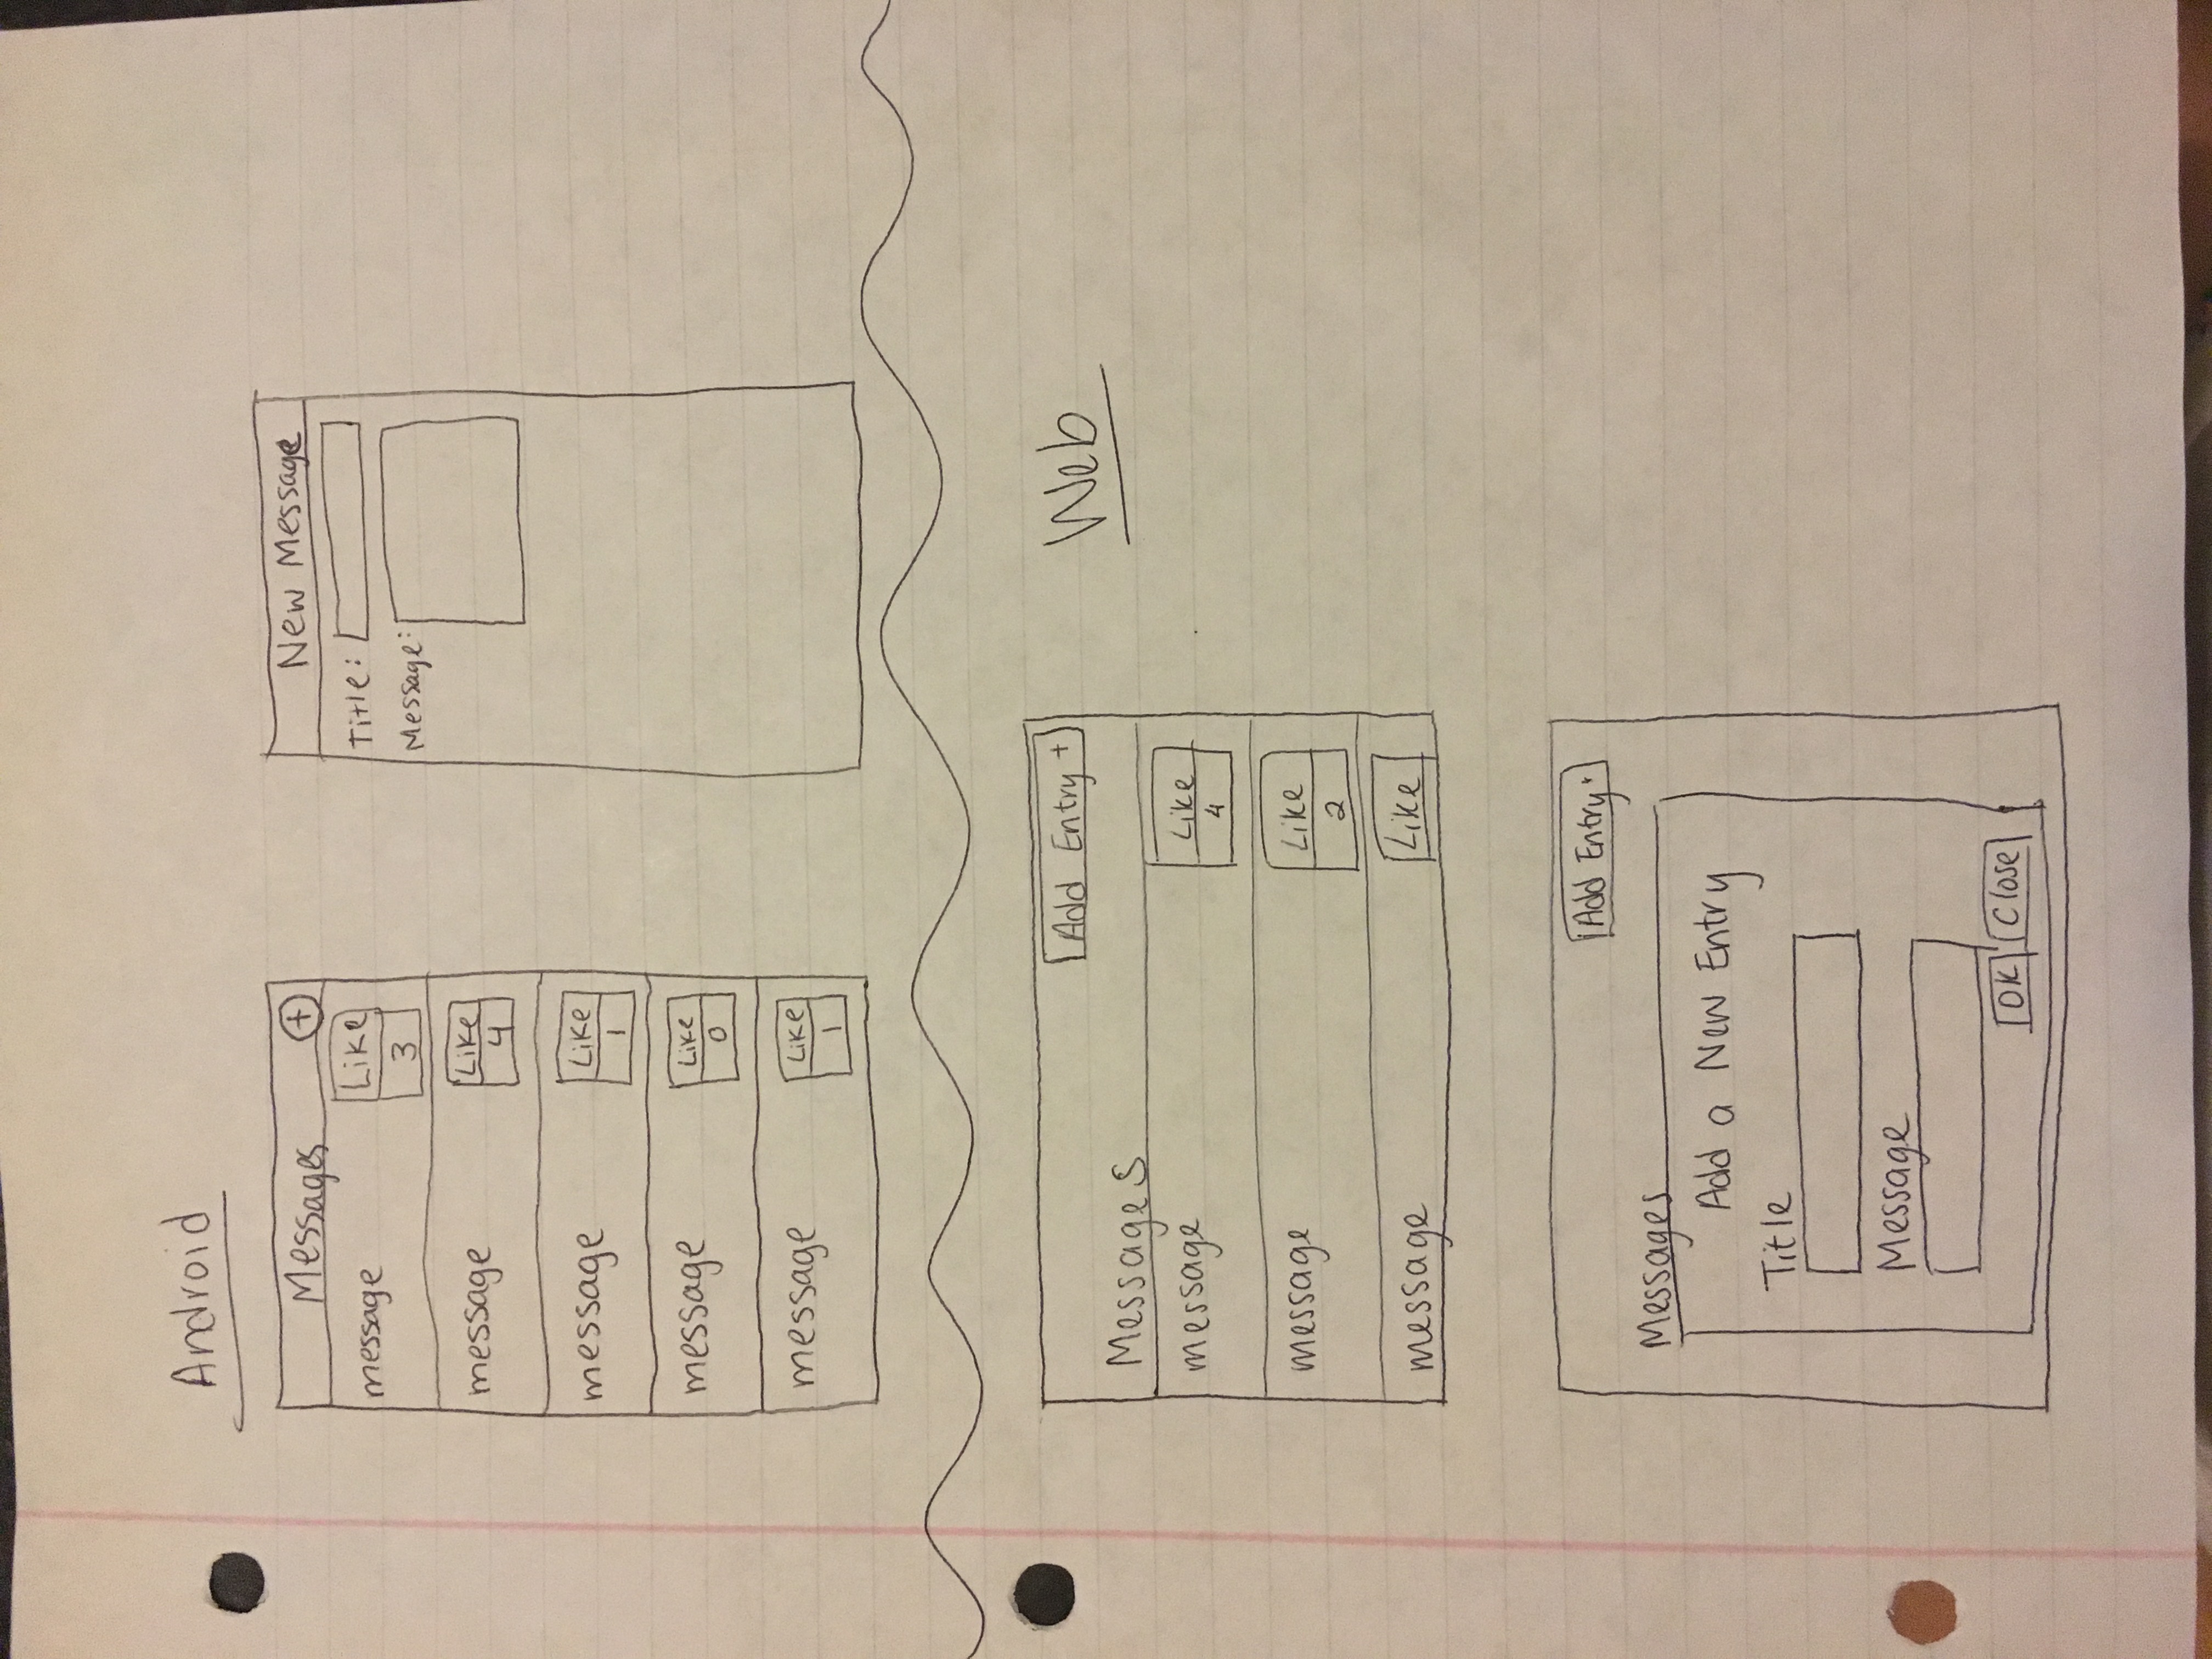 Android
Messages +
message Like
3
message Like
4
message Like
1
message Like
0
message Like
1
New Message
Title:
Message:
Web
Add Entry +
Messages
message Like
4
message Like
2
message Like
Add Entry +
Messages
Add a New Entry
Title
Message
OK Close